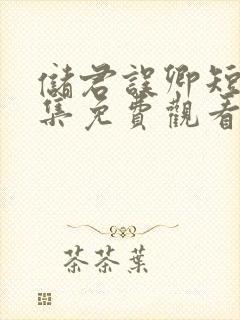 儲君誤卿短
集免費觀看
茶茶葉